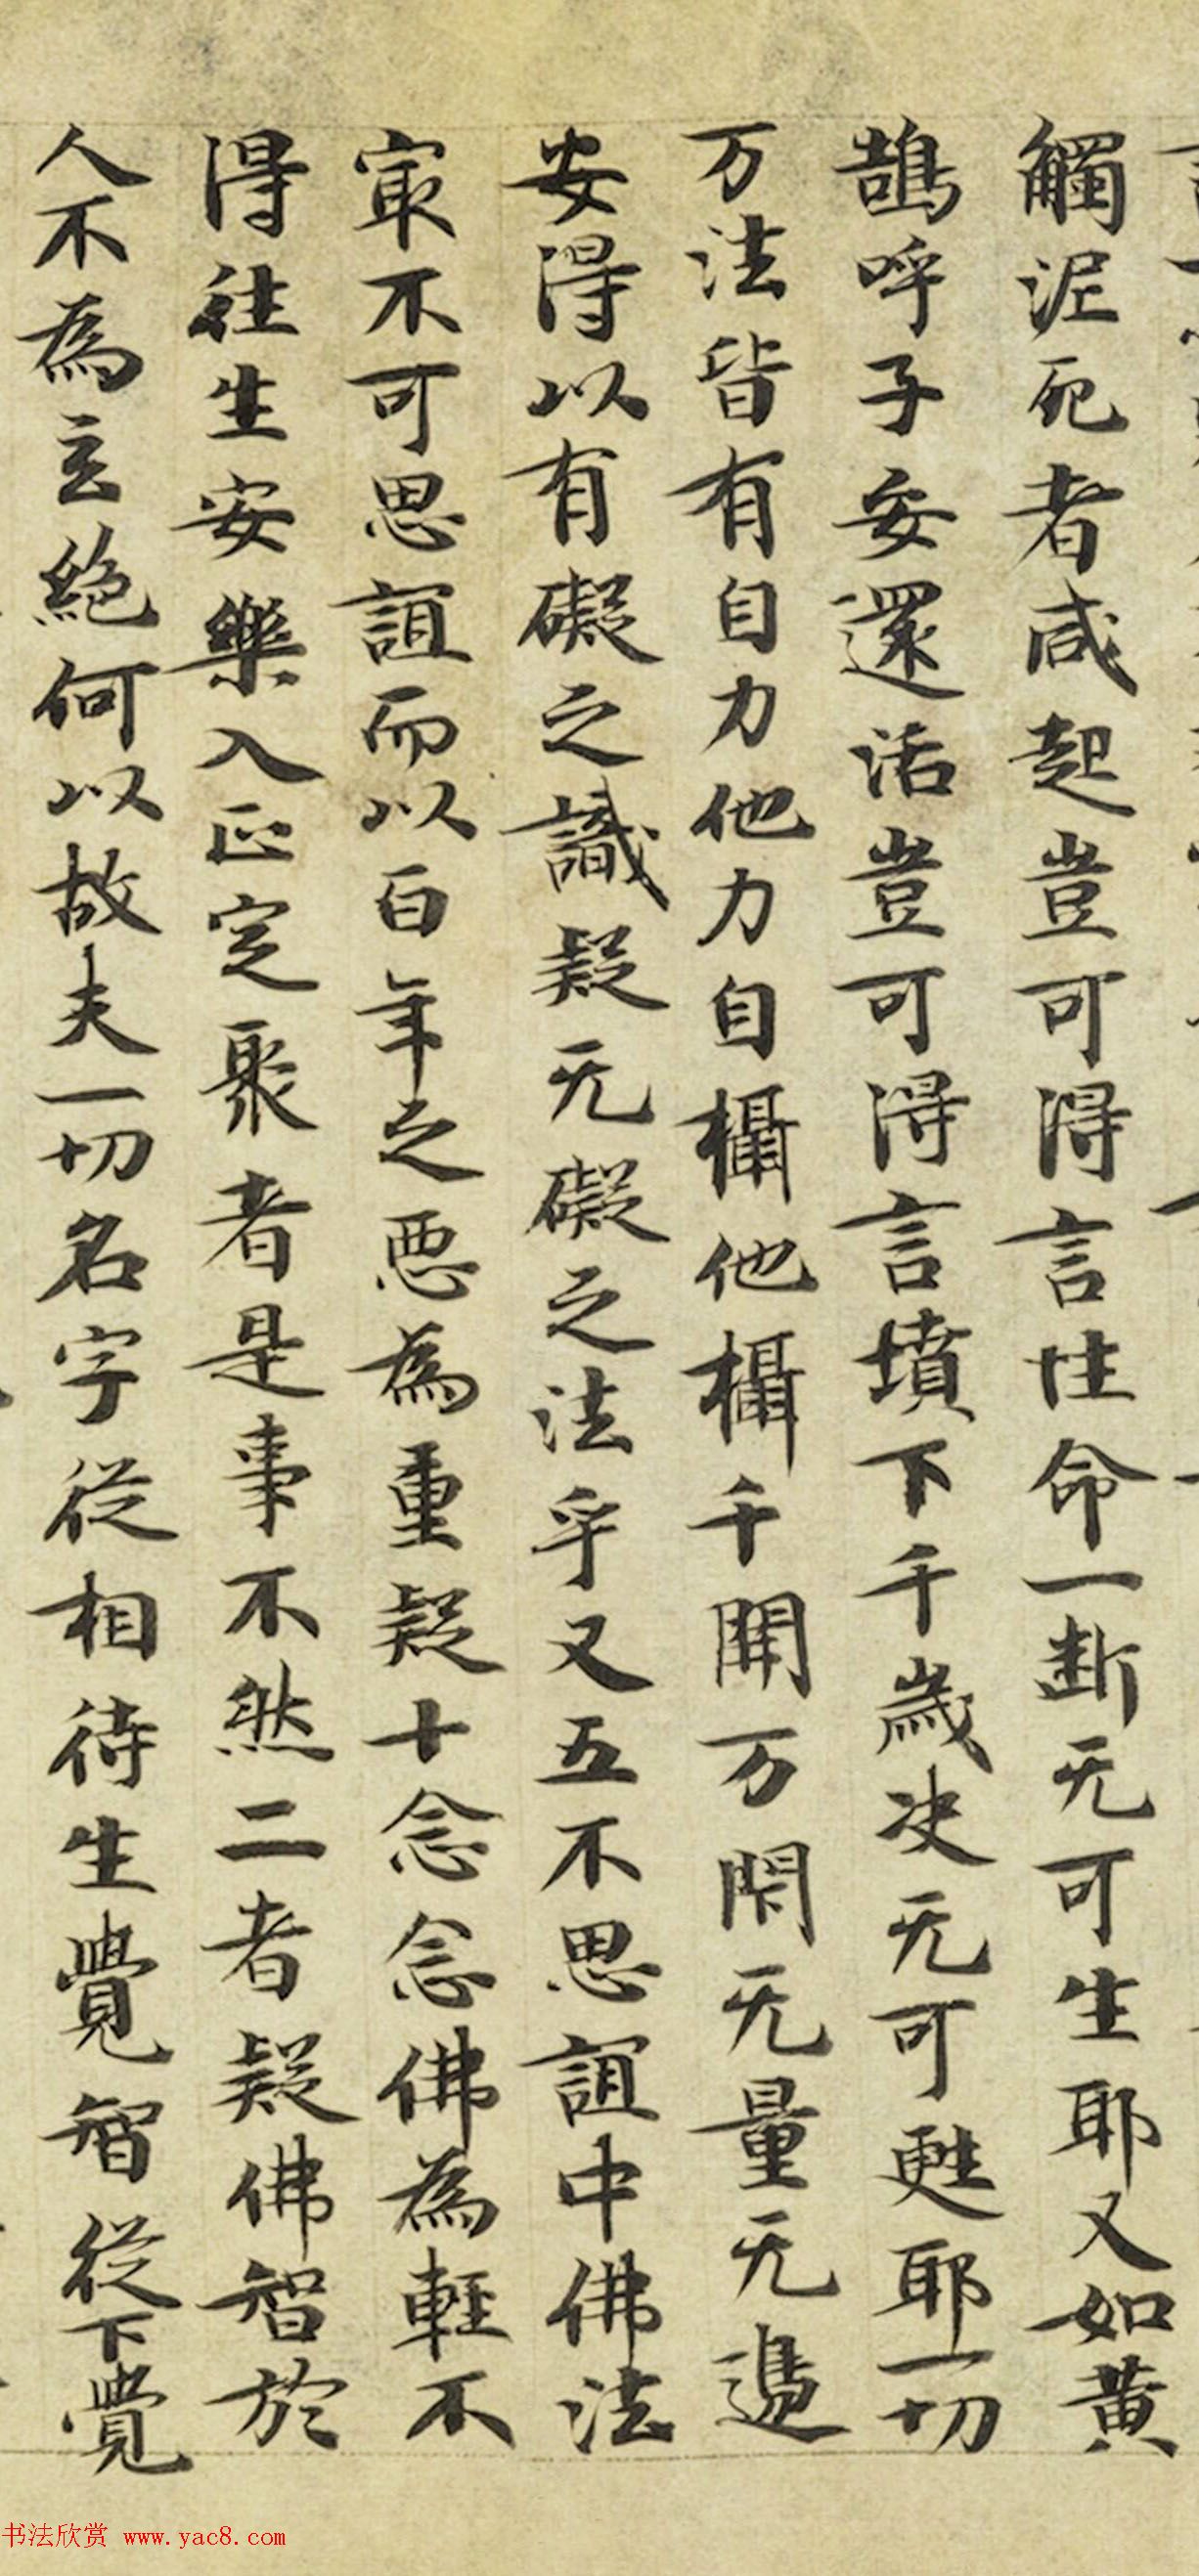 觸泥死者咸起豈可得言性命一断无可生耶又如黄
鵠呼子安子安還活豈可得言墳下千歲决无可甦耶一切
万法皆有自力他力自攝他攝千開万閇无量无邊
安得以有礙之識疑无礙之法乎又五不思誼中佛法
冣不可思誼而以百年之惡為重疑十念念佛為輕不
得往生安樂入正定聚者是事不然二者疑佛智於
人不為玄絶何以故夫一切名字從相待生覺智從下覺
书法欣赏 www.yac8.com